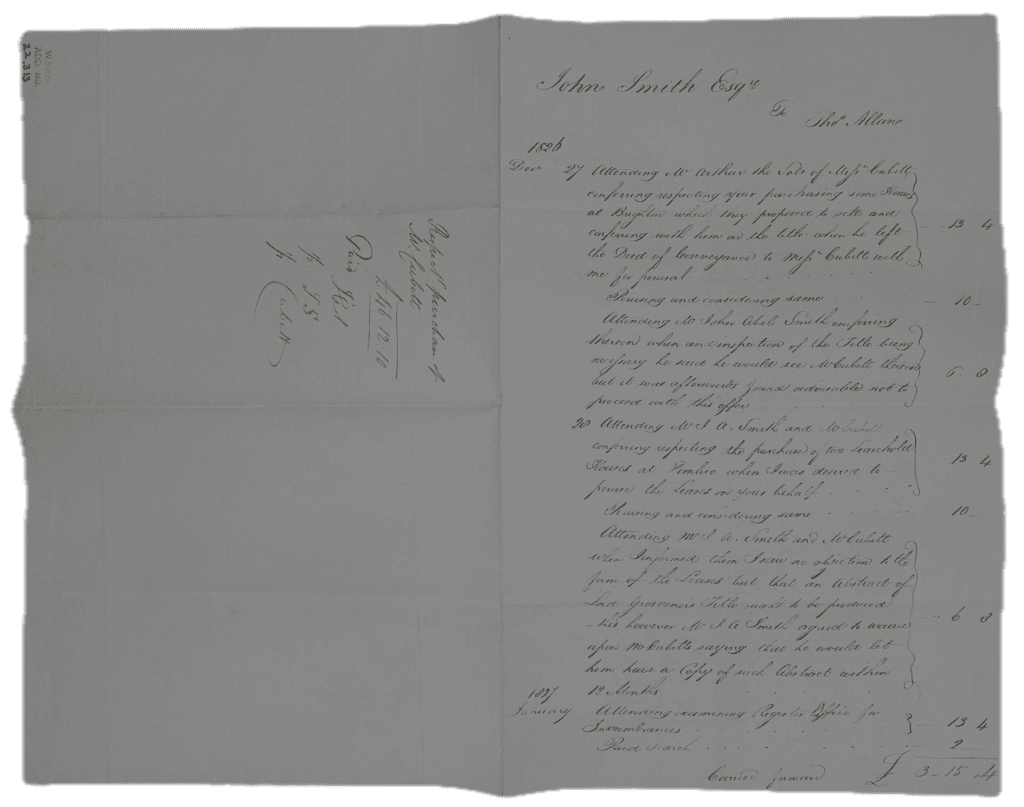 WSRO
ADD MS
22,313
Respect<sup>g</sup> purchase of
Mr. Cubitt
£46.12.10
Paid
Cubitt
John Smith Esq<sup>re</sup>
To
Tho<sup>s</sup> Allan
1826
Dec 27 Attending Mr Arthur the Sol<sup>r</sup> of Mess<sup>rs</sup> Cubitt
conferring respecting your purchasing some Houses
at Brighton which they proposed to sell and 13 4
conferring with him on the title when he left
the Deed of Conveyance to Mess<sup>rs</sup> Cubitt with
me for perusal
Perusing and considering same 10 -
Attending Mr John Abel Smith conferring
thereon when an inspection of the Title being
necessary he said he would see Mr Cubitt thereon 6. 8
but it was afterwards found advisable not to
proceed with this offer
28 Attending Mr J A. Smith and Mr Cubitt
conferring respecting the purchase of two Leasehold
Houses at Pimlico when I was desired to 13 4
peruse the Leases on your behalf
Perusing and considering same 10 -
Attending Mr J A. Smith and Mr Cubitt
when I informed them I saw no objection to the
form of the Leases but that an Abstract of
Lord Grosvenor's Title ought to be produced
this however Mr J A Smith agreed to waive 6 8
upon Mr Cubitts saying that he would let
him have a Copy of such Abstract within
12 Months
1827
January Attending examining Register Office for
Incumbrances 13 4
Paid search 2
Carried forward £ 3 - 15 - 4